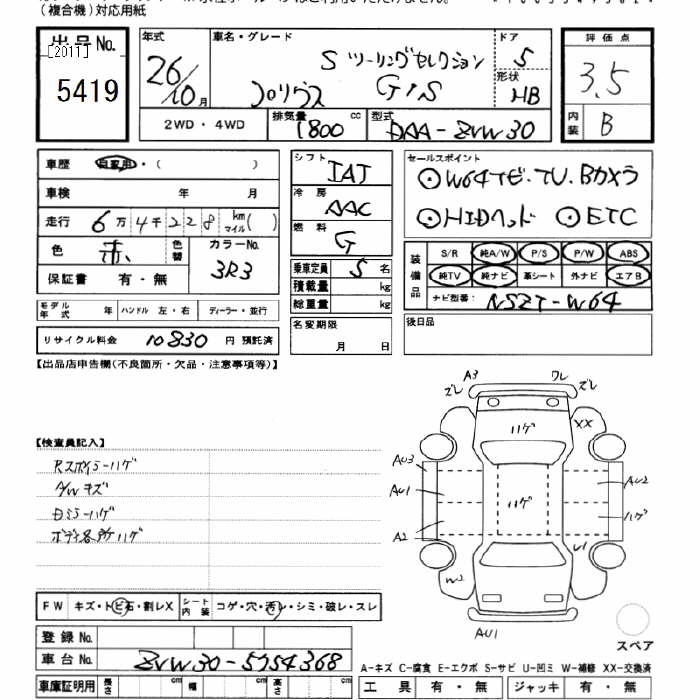 (複合機)対応用紙
出品No.
[2011]
5419
年式
26/10月
車名・グレード
S ツーリングセレクション
プリウス G'S
ドア
5
形状
HB
評価点
3.5
内装
B
2WD・4WD
排気量
1800 cc
型式
DAA-ZVW30
車歴 自家用・( )
車検 年 月
走行 6万4千228 km マイル( )
色 赤 色替 カラーNo. 3R3
保証書 有・無
モデル年式 年 ハンドル 左・右 ディーラー・並行
リサイクル料金 10830 円 預託済
シフト
IAT
冷房
AAC
燃料
G
乗車定員 5 名
積載量 kg
総重量 kg
名変期限
月 日
セールスポイント
⊙W64ナビ.TV.Bカメラ
⊙HIDヘッド ⊙ETC
装備品
S/R 純A/W P/S P/W ABS
純TV 純ナビ 革シート 外ナビ エアB
ナビ型番: NSZT-W64
後日品
【出品店申告欄(不良箇所・欠品・注意事項等)】
【検査員記入】
Rスポイラーハゲ
A/Wキズ
日ミラーハゲ
ボディ各所ハゲ
A3
ズレ
ワレ
ズレ
ハゲ
XX
AU3
AU1
A2
ハゲ
AU2
ハゲ
U1
W2
AU1
スペア
FW キズ・トビ石・割レX シート内装 コゲ・穴・汚レ・シミ・破レ・スレ
登録No.
車台No. ZVW30-5754368
車庫証明用 長さ cm 幅 cm 高さ cm
A-キズ C-腐食 E-エクボ S-サビ U-凹ミ W-補修 XX-交換済
工具 有・無 ジャッキ 有・無